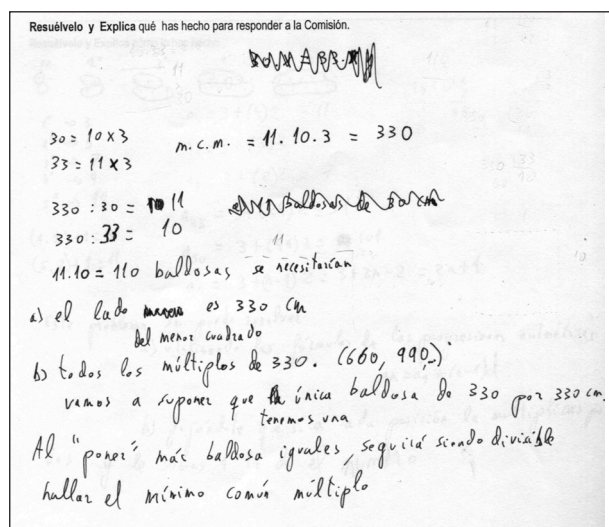 Resuélvelo y Explica qué has hecho para responder a la Comisión.
30 = 10 x 3
33 = 11 x 3
m.c.m. = 11. 10. 3 = 330
330 : 30 = 11
330 : 33 = 10
11
11.10 = 110 baldosas se necesitarían
a) el lado es 330 cm
del menor cuadrado
b) todos los múltiplos de 330. (660, 990..).
vamos a suponer que única baldosa de 330 por 330 cm.
tenemos una
Al "poner" más baldosa iguales, seguirá siendo divisible
hallar el mínimo común múltiplo